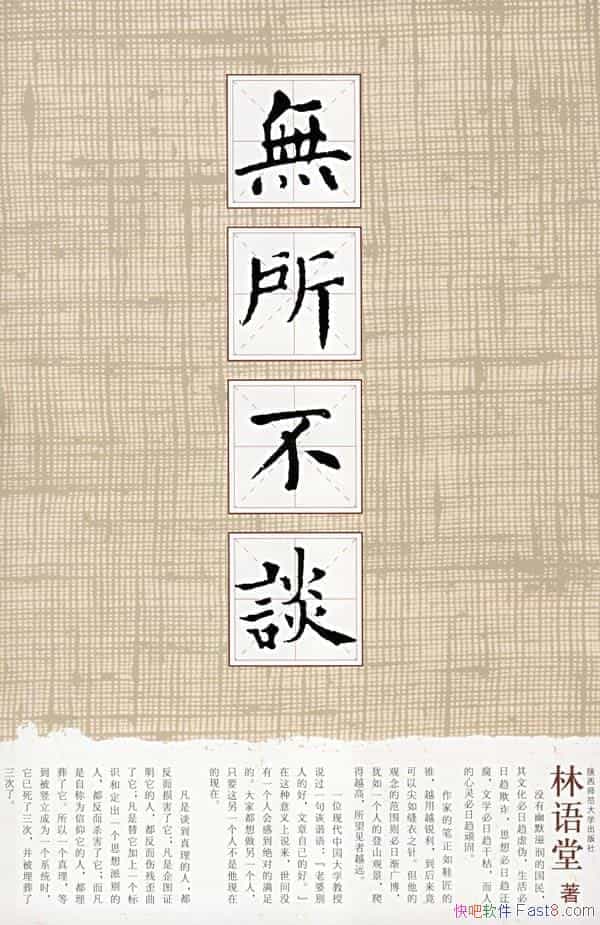 無所不談
陕西师范大学出版社
林语堂 著
没有幽默滋润的国民，
其文化必日趋虚伪，生活必
日趋欺诈，思想必日趋迂
腐，文学必日趋干枯，而人
的心灵必日趋顽固。
作家的笔正如鞋匠的
锥，越用越锐利，到后来竟
可以尖如缝衣之针。但他的
观念的范围则必日渐广博，
犹如一个人的登山观景，爬
得越高，所望见者越远。
一位现代中国大学教授
说过一句诙谐语：“老婆别
人的好，文章自己的好。”
在这种意义上说来，世间没
有一个人会感到绝对的满足
的。大家都想做另一个人，
只要这另一个人不是他现在
的现在。
凡是谈到真理的人，都
反而损害了它；凡是企图证
明它的人，都反而伤残歪曲
了它；凡是替它加上一个标
识和定出一个思想派别的
人，都反而杀害了它；而凡
是自称为信仰它的人，都埋
葬了它。所以一个真理，等
到被竖立成为一个系统时，
它已死了三次，并被埋葬了
三次了。
快吧软件 Fast8.com